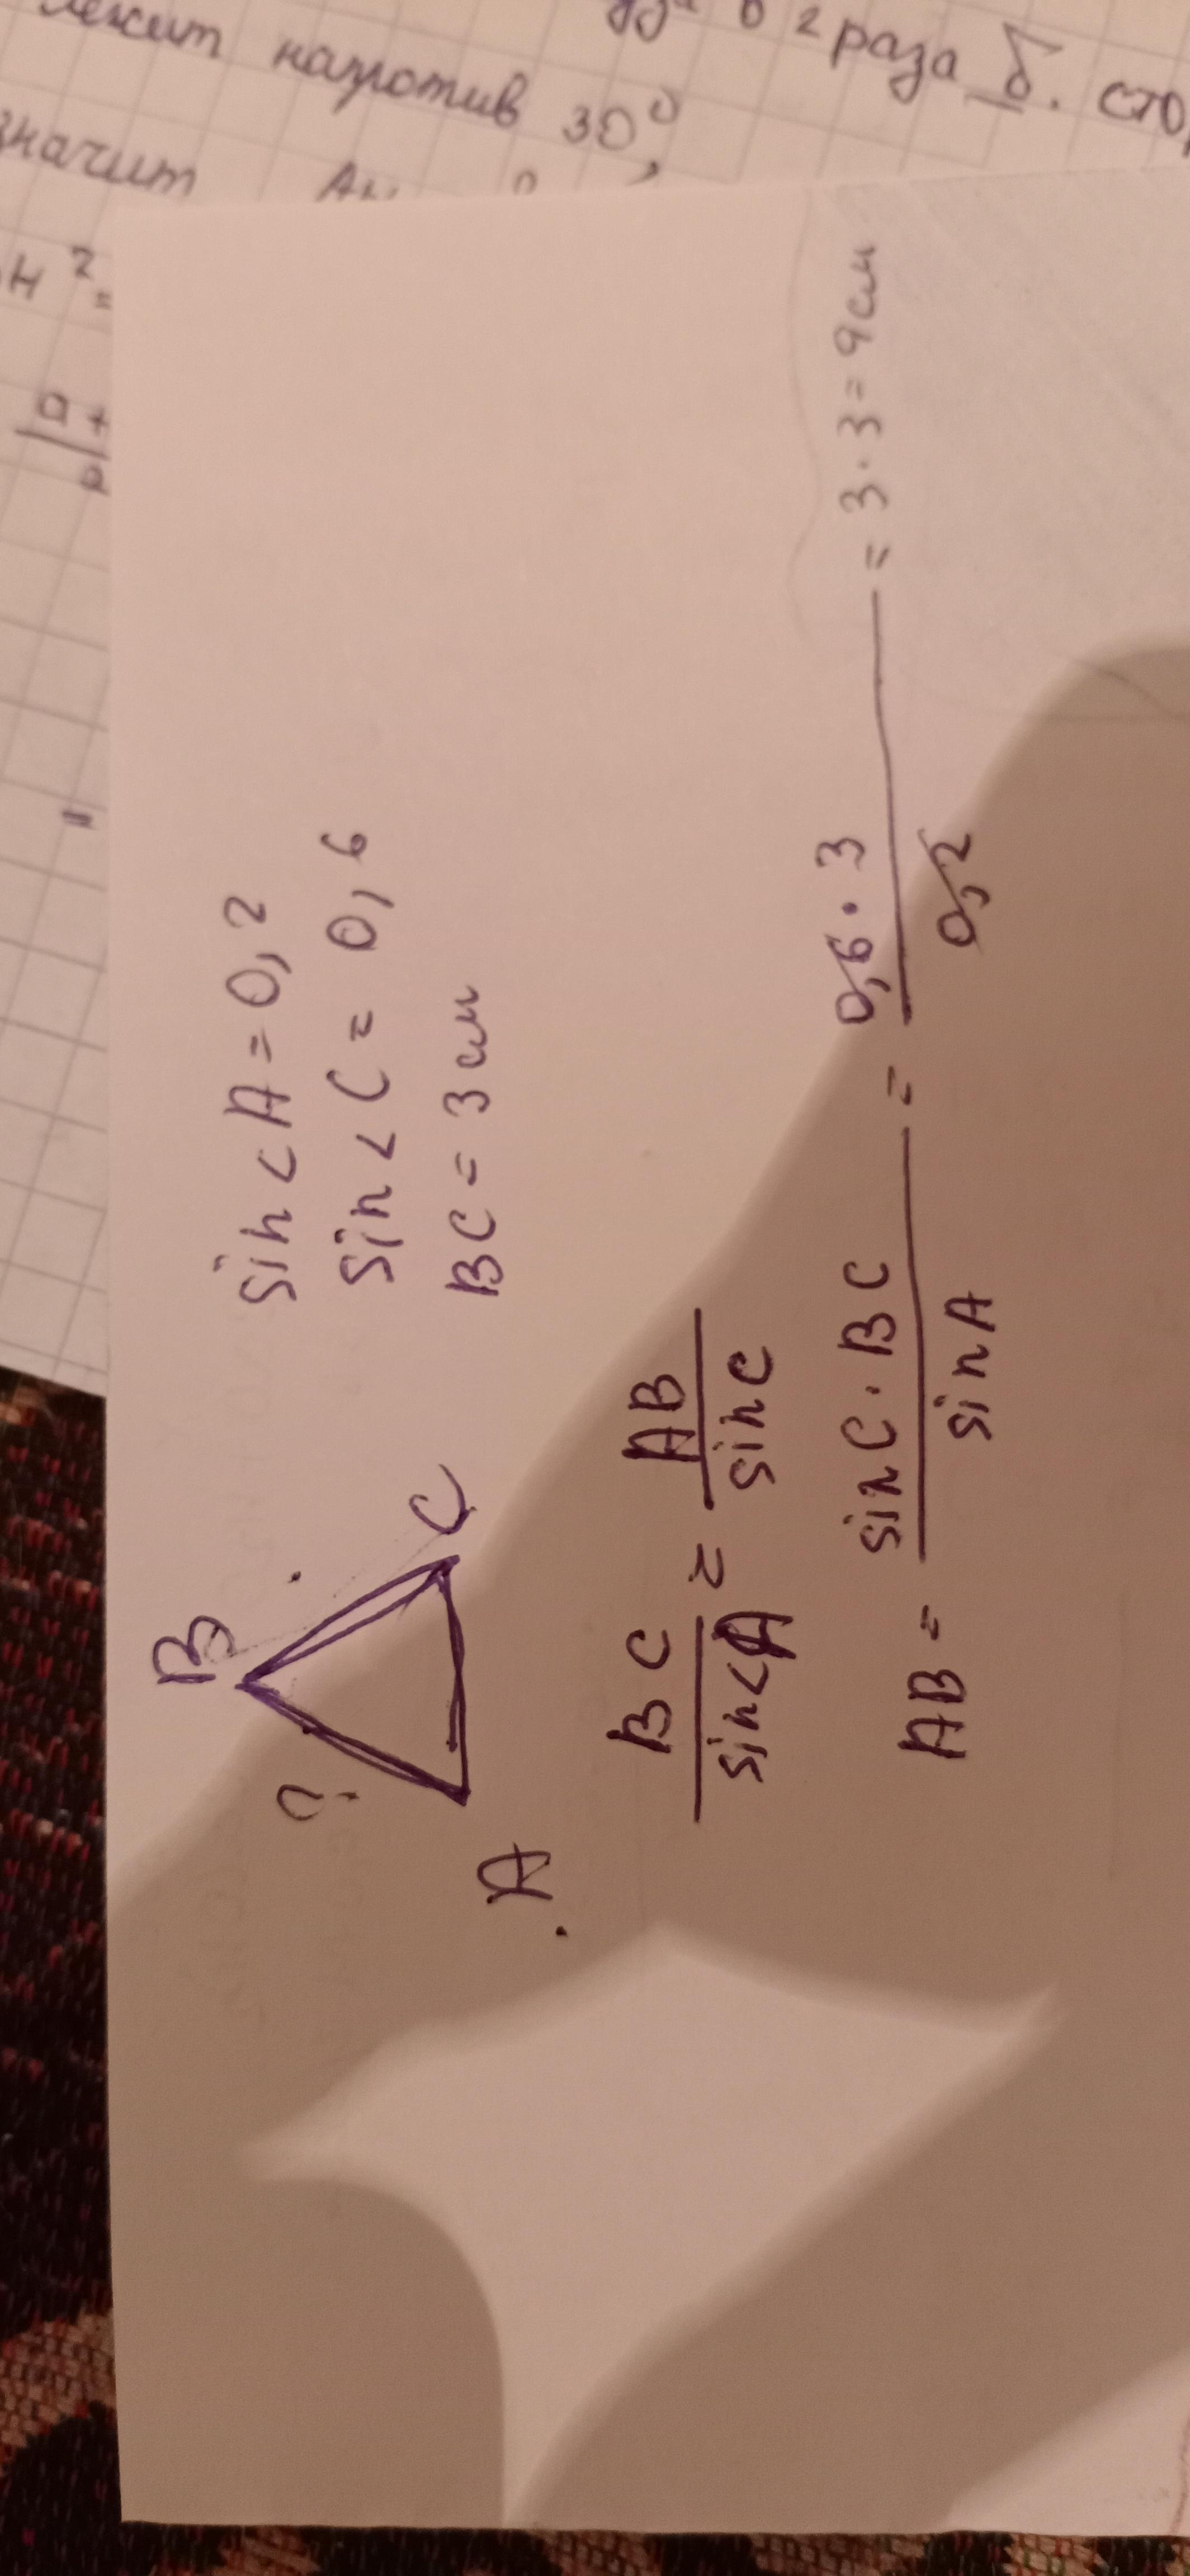 лежит напротив 30°,
в 2 раза б.
значит
H²=
a+
2
=
B
?
A
C
sin<A=0,2
sin<C=0,6
BC=3см
BC/sin<A = AB/sinC
AB = sinC·BC/sinA = 0,6·3/0,2 = 3·3=9см